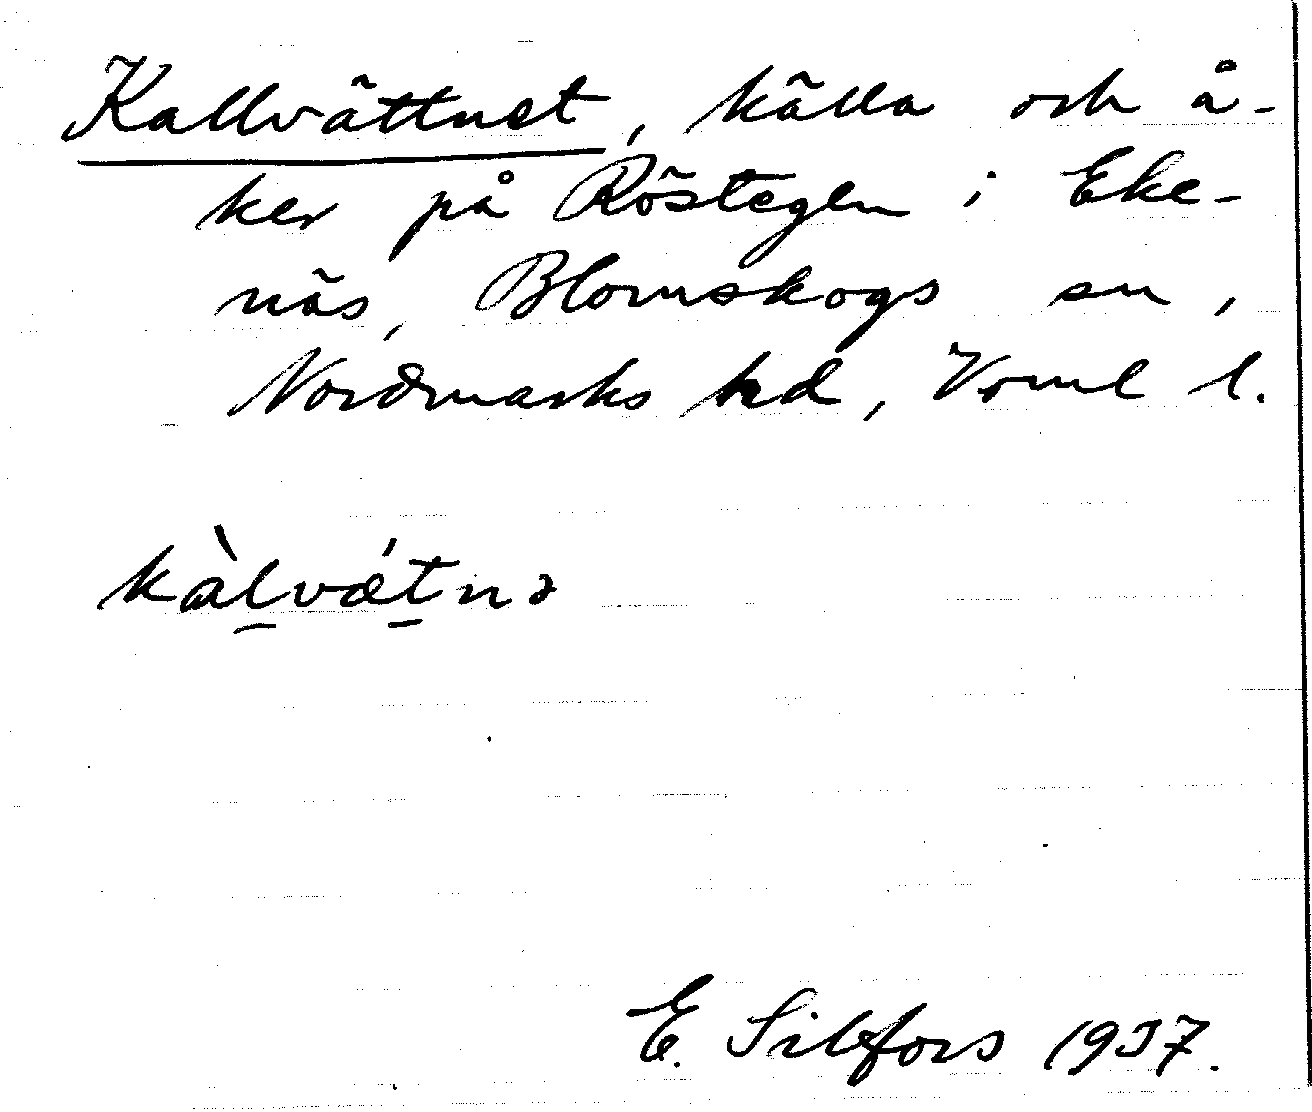 Kallvättnet, källa och å-
ker på Röstegen i Eke-
näs, Blomskogs sn,
Nordmarks hd, Vrml l.
kàl̠vǽt̠nə
E. Silfors 1937.